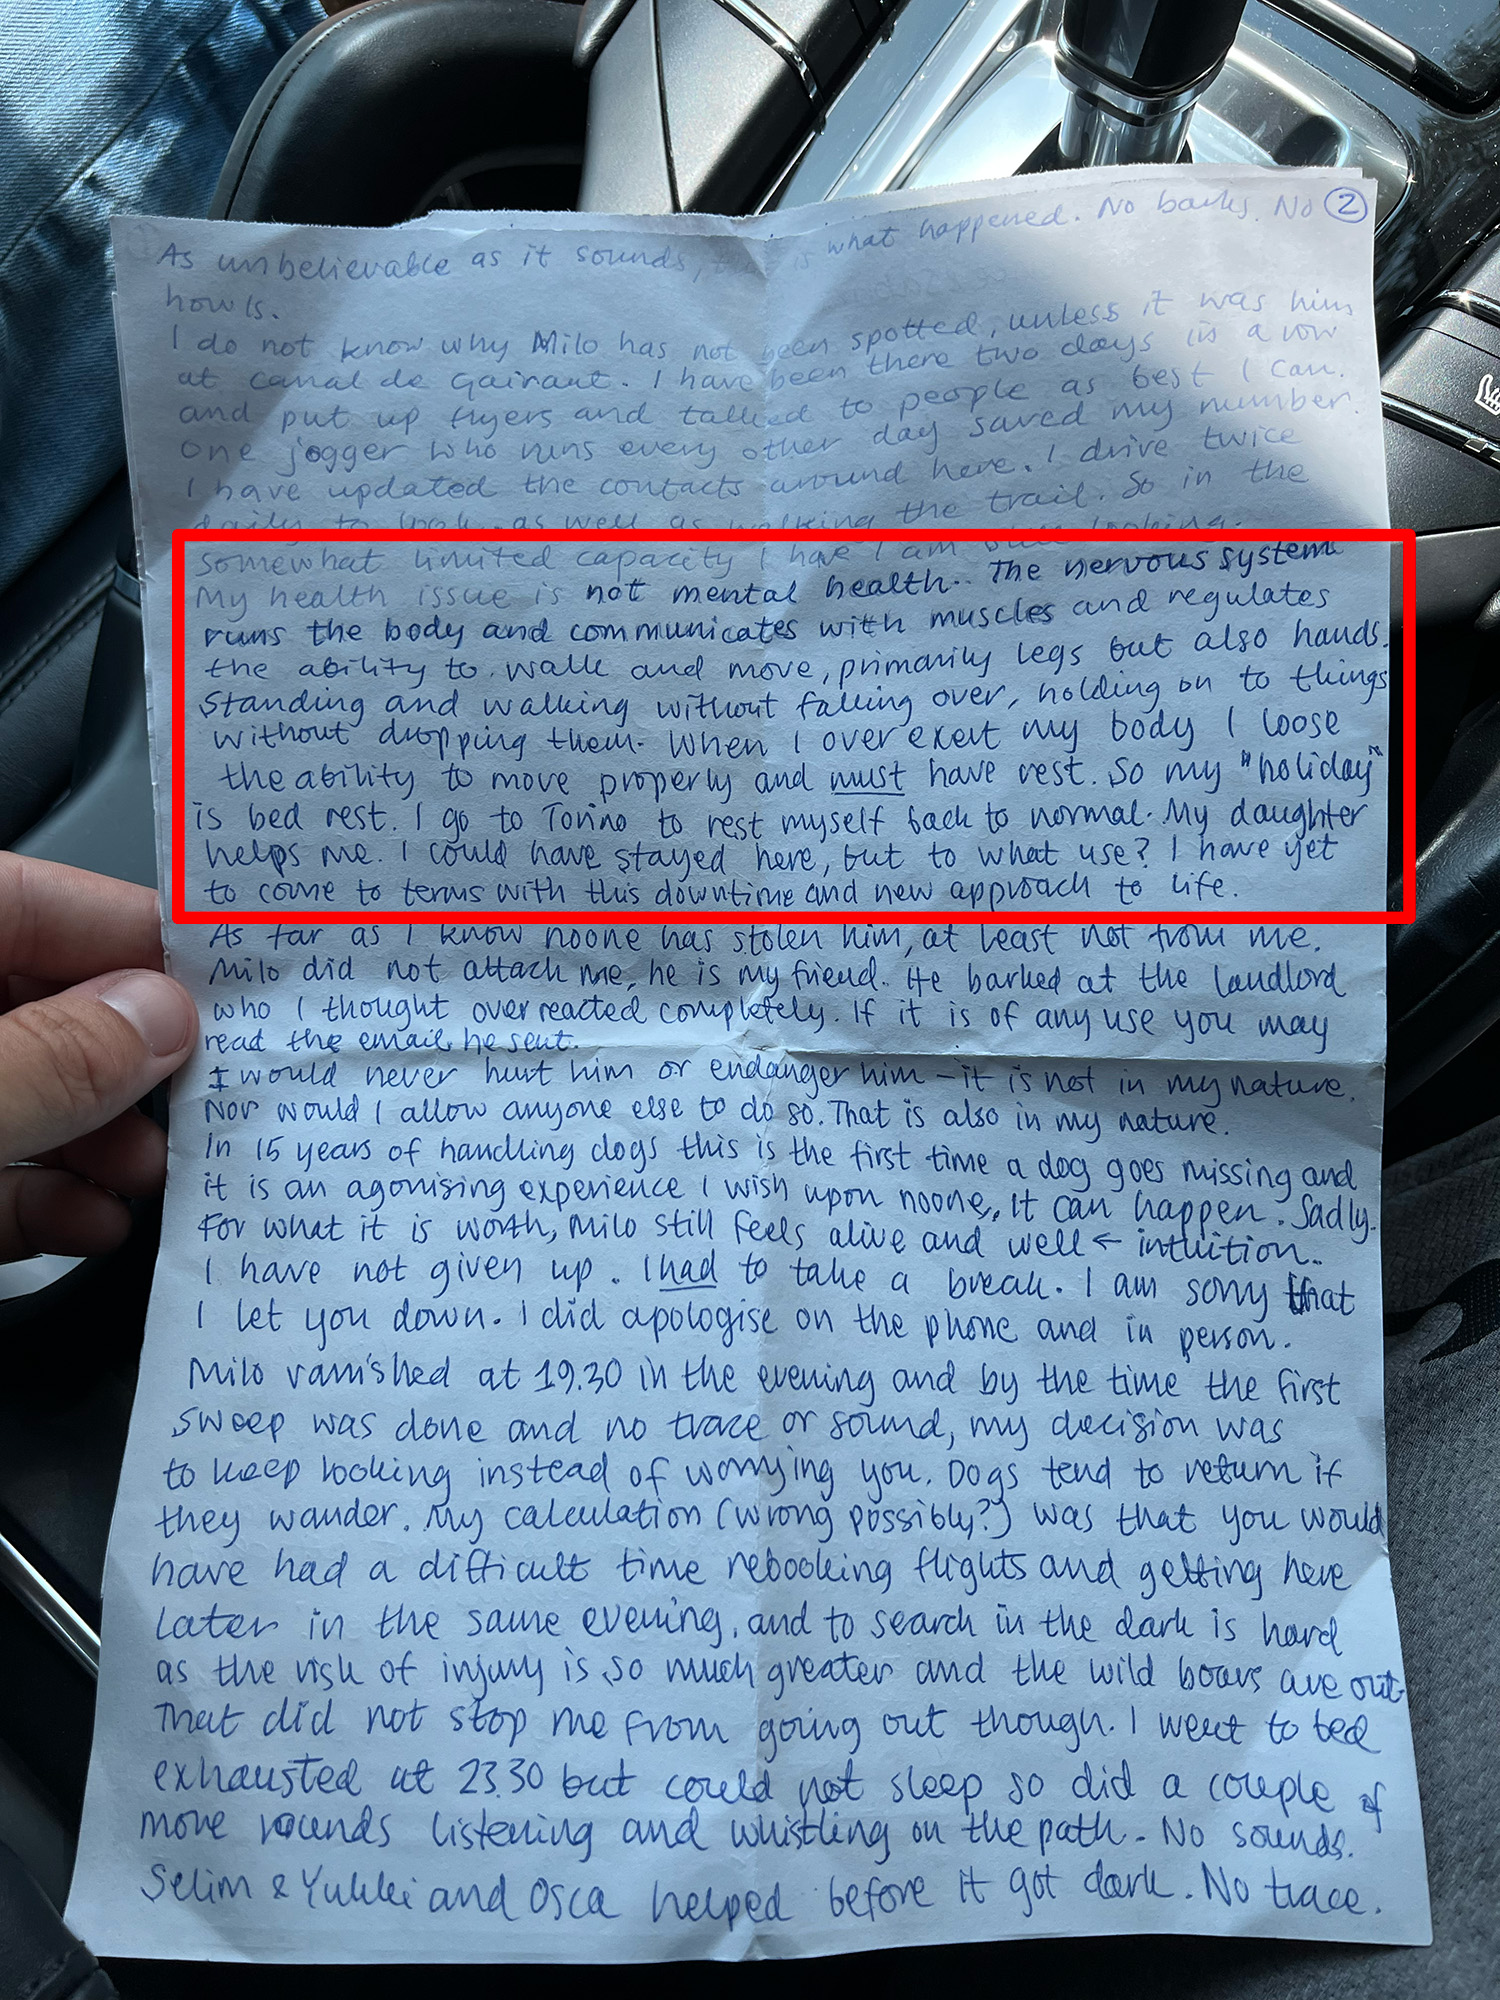 As unbelievable as it sounds, this is what happened. No barks. No ②
howls.
I do not know why Milo has not been spotted, unless it was him
at canal de Gairaut. I have been there two days in a row
and put up flyers and talked to people as best I can.
One jogger who runs every other day saved my number.
I have updated the contacts around here. I drive twice
daily to look, as well as walking the trail. So in the
somewhat limited capacity I have I am still looking.
My health issue is not mental health. The nervous system
runs the body and communicates with muscles and regulates
the ability to walk and move, primarily legs but also hands.
Standing and walking without falling over, holding on to things
without dropping them. When I over exert my body I loose
the ability to move properly and must have rest. So my "holiday"
is bed rest. I go to Torino to rest myself back to normal. My daughter
helps me. I could have stayed here, but to what use? I have yet
to come to terms with this downtime and new approach to life.
As far as I know noone has stolen him, at least not from me.
Milo did not attack me, he is my friend. He barked at the landlord
who I thought over reacted completely. If it is of any use you may
read the email he sent.
I would never hurt him or endanger him – it is not in my nature.
Nor would I allow anyone else to do so. That is also in my nature.
In 15 years of handling dogs this is the first time a dog goes missing and
it is an agonising experience I wish upon noone, it can happen. Sadly.
For what it is worth, Milo still feels alive and well ← intuition.
I have not given up. I had to take a break. I am sorry that
I let you down. I did apologise on the phone and in person.
Milo vanished at 19.30 in the evening and by the time the first
sweep was done and no trace or sound, my decision was
to keep looking instead of worrying you. Dogs tend to return if
they wander. My calculation (wrong possibly?) was that you would
have had a difficult time rebooking flights and getting here
later in the same evening, and to search in the dark is hard
as the risk of injury is so much greater and the wild boars are out.
That did not stop me from going out though. I went to bed
exhausted at 23.30 but could not sleep so did a couple of
more rounds listening and whistling on the path. No sounds.
Selim & Yukki and Osca helped before it got dark. No trace.